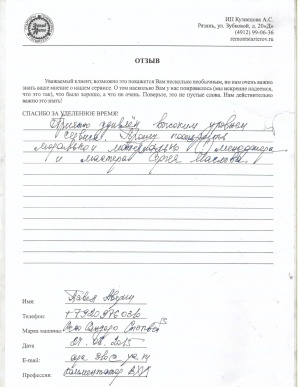 ИП Кузнецова А.С.
Рязань, ул. Зубковой, д. 20«Д»
(4912) 99-06-36
ОТЗЫВ
Уважаемый клиент, возможно это покажется Вам несколько необычным, но нам очень важно
знать ваше мнение о нашем сервисе. О том насколько Вам у нас понравилось (мы искренне надеемся,
что это так), что было хорошо, а что не очень. Поверьте, это не пустые слова. Нам действительно
важно это знать!
СПАСИБО ЗА УДЕЛЕННОЕ ВРЕМЯ!
Приятно удивлён высоким уровнем
сервиса. Прошу поощрить
морально и материально (!) менеджера
и мастера Сергея Маслова
Имя Павел
Телефон:
Марка машины: Рено Сандеро Степвей
Дата 07.08.2015
E-mail:
Профессия: комментатор